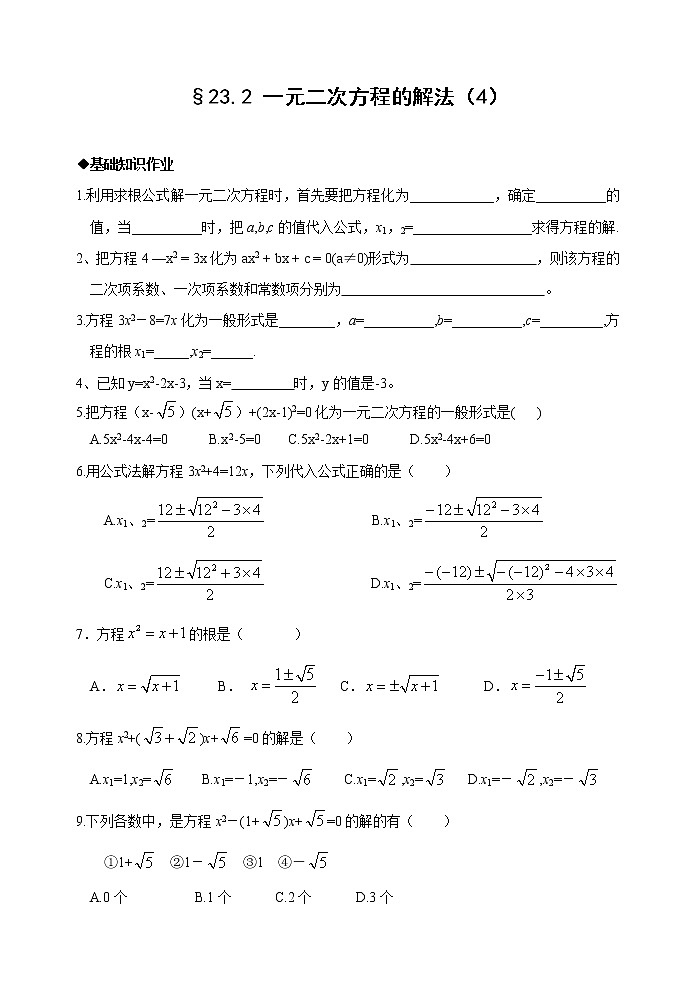 §23.2 一元二次方程的解法（4）
◆基础知识作业
1.利用求根公式解一元二次方程时，首先要把方程化为____________，确定__________的
值，当__________时，把 a,b,c 的值代入公式，x₁，₂=_________________求得方程的解.
2、把方程 4 —x² = 3x 化为 ax² + bx + c = 0(a≠0)形式为__________________，则该方程的
二次项系数、一次项系数和常数项分别为_____________________________。
3.方程 3x²－8=7x 化为一般形式是________，a=__________,b=__________,c=_________,方
程的根 x₁=_____,x₂=______.
4、已知 y=x²-2x-3，当 x=_________时，y 的值是-3。
5.把方程（x-√5）(x+√5）+(2x-1)²=0 化为一元二次方程的一般形式是( )
A.5x²-4x-4=0 B.x²-5=0 C.5x²-2x+1=0 D.5x²-4x+6=0
6.用公式法解方程 3x²+4=12x，下列代入公式正确的是（ ）
A.x₁、₂=(12±√(12²－3×4))/2 B.x₁、₂=(－12±√(12²－3×4))/2
C.x₁、₂=(12±√(12²+3×4))/2 D.x₁、₂=(－(－12)±√(－(－12)²－4×3×4))/(2×3)
7．方程 x² = x+1 的根是（ ）
A．x=√(x+1) B． x=(1±√5)/2 C．x=±√(x+1) D．x=(－1±√5)/2
8.方程 x²+(√3+√2)x+√6=0 的解是（ ）
A.x₁=1,x₂=√6 B.x₁=－1,x₂=－√6 C.x₁=√2,x₂=√3 D.x₁=－√2,x₂=－√3
9.下列各数中，是方程 x²－(1+√5)x+√5=0 的解的有（ ）
①1+√5 ②1－√5 ③1 ④－√5
A.0 个 B.1 个 C.2 个 D.3 个